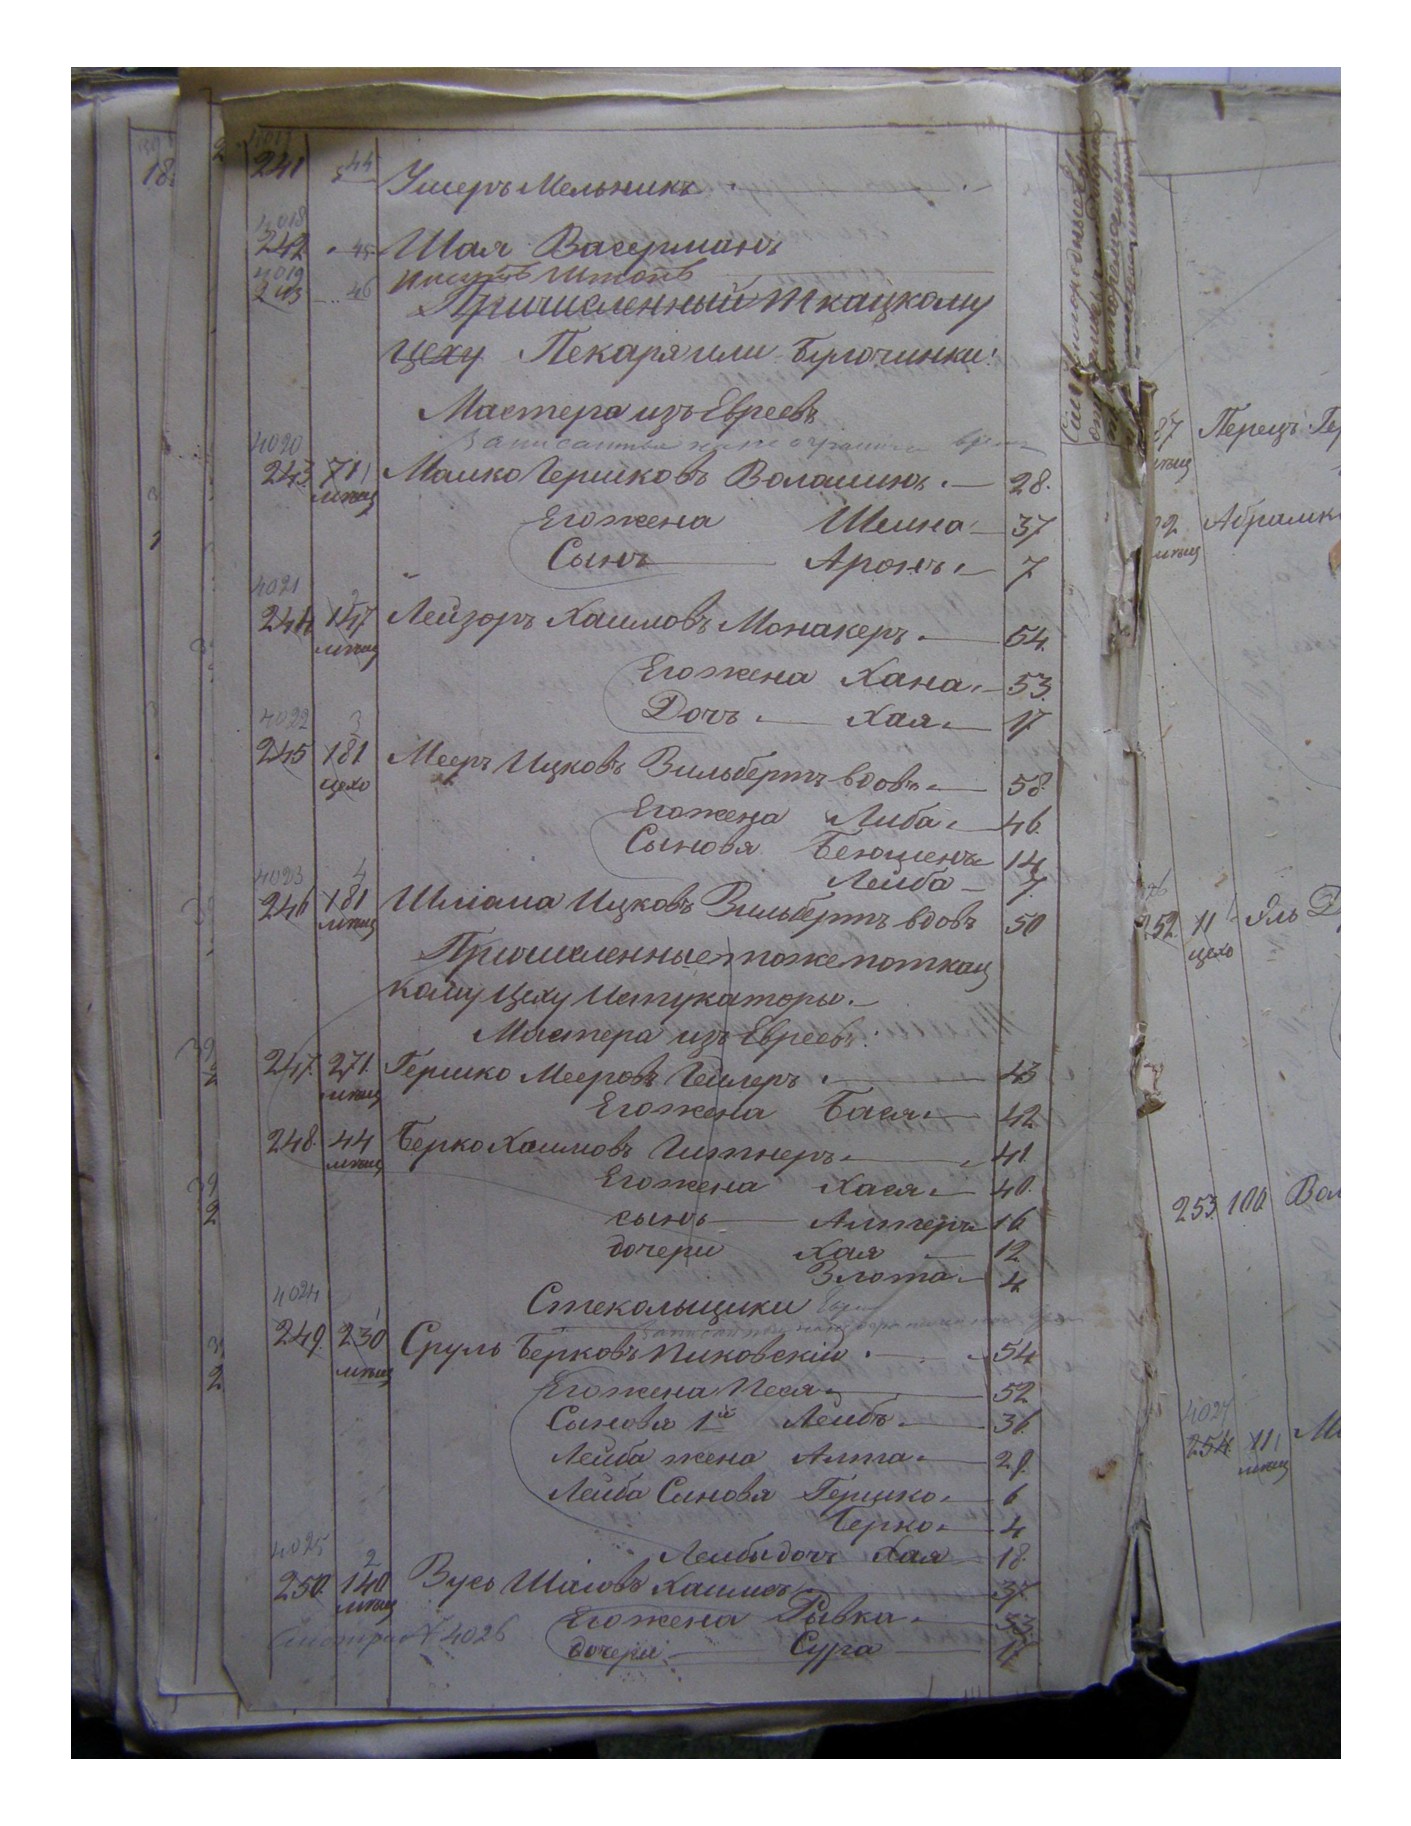 4017
241 44 Умеръ Мельникъ
4018
242 45 Шая Васерманъ
4019
243 46
Причисленный Ткацкому
Цеху Пекаря или Булочники:
Мастера изъ Евреевъ
4020
243 71 Мошко Гершковъ Волошинъ 28.
мѣщ
Его жена Шейна 37
Сынъ Аронъ 7
4021 2
244 147 Лейзоръ Хаимовъ Монакеръ 54.
мѣщ
Его жена Хана 53.
Дочь Хая 17
4022 3
245 181 Мееръ Ицковъ Вильбертъ вдовъ 58.
цехо
Его жена Либа 46.
Сыновя Бенюменъ 14
Лейба 7.
4023 4
246 181 Шліома Ицковъ Вильбертъ вдовъ 50
мѣщ
Причисленные тоже по ткац
кому Цеху Истукаторы.
Мастера изъ Евреевъ:
247. 271. Гершко Мееровъ Геллеръ 43
мѣщ
Его жена Бася 42
248. 44 Берко Хаимовъ Гитнеръ 41
мѣщ
Его жена Хася 40.
сынъ Алтеръ 16
дочери Хая 12
Злота 4
4024
Стекольщики
249. 230 Сруль Берковъ Пиковскій 54
мѣщ
Его жена Песя 52
Сыновя 1й Лейбъ 36.
Лейба жена Алта 29.
Лейба Синовя Гершко 6
Берко 4
Лейби дочь Хая 18.
4025 2
250. 140 Вусь Шаіовъ Хаимов 37.
мѣщ
Его жена Рывка 33.
Смотри № 4026
дочери Сура
87 Перецъ Гер
мѣщ
Абрамк
мѣщ
252. 11 Эль
цехо
253 100 Вол
4027
254 11
мѣщ